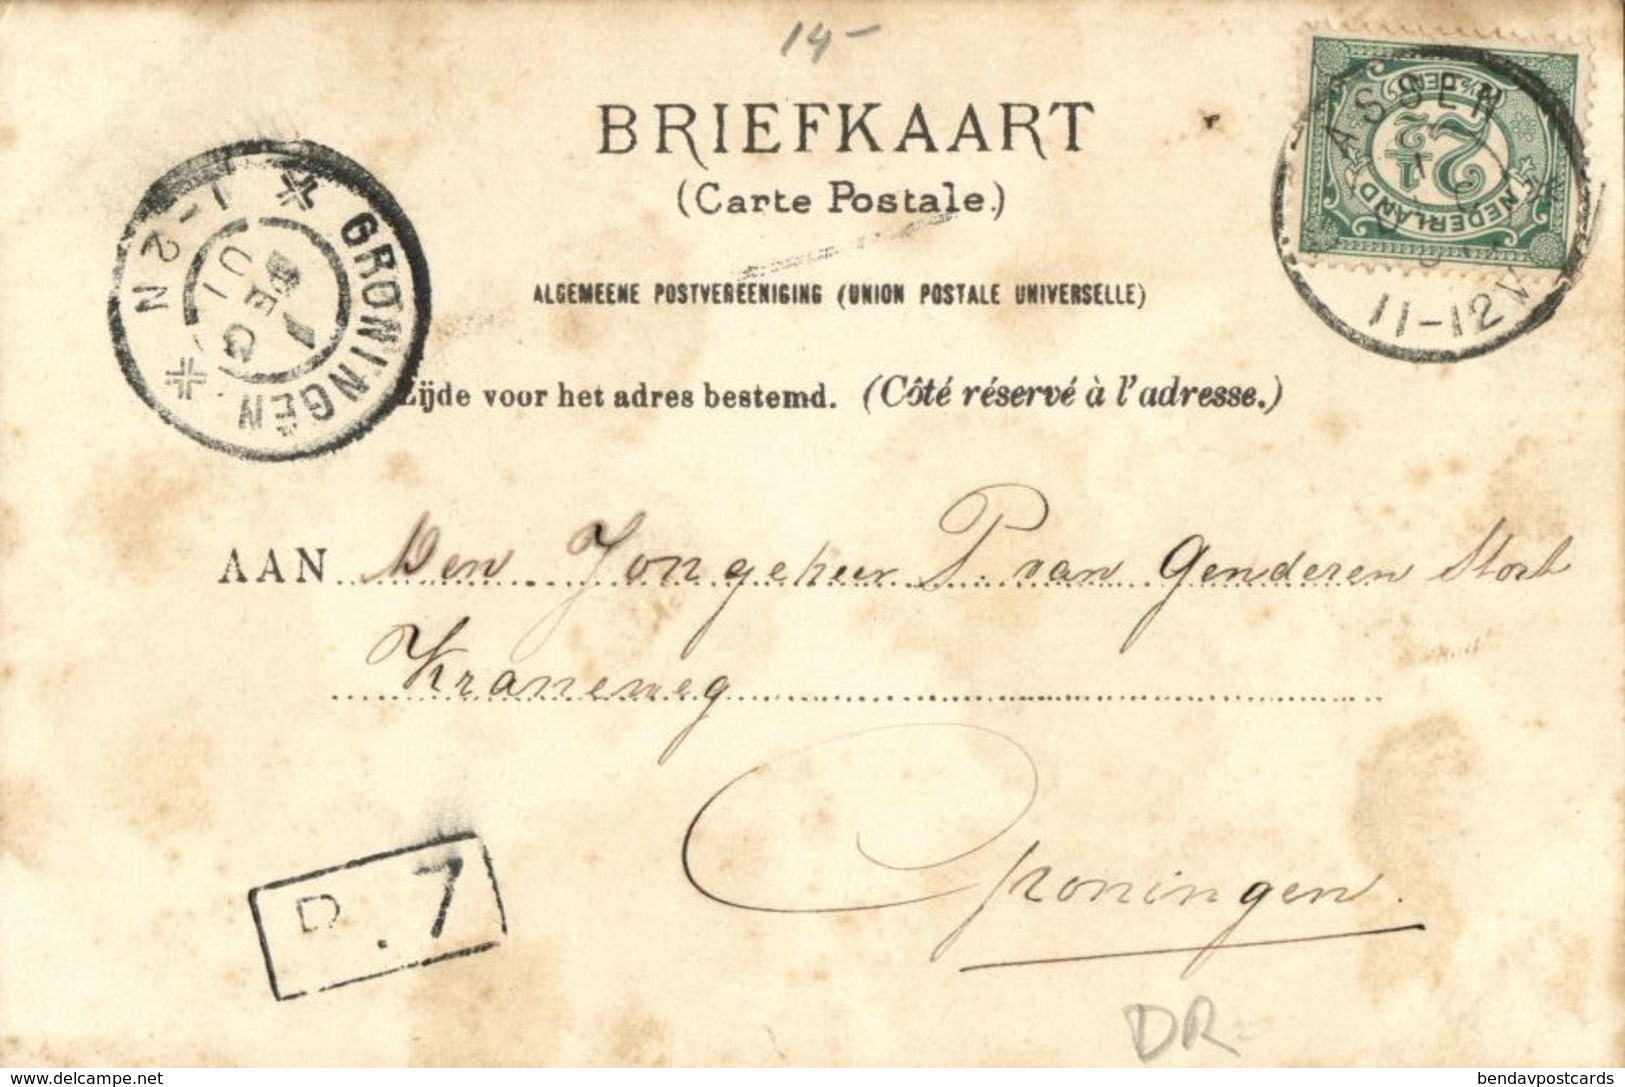 14-
BRIEFKAART
(Carte Postale.)
ALGEMEENE POSTVEREENIGING (UNION POSTALE UNIVERSELLE)
Zijde voor het adres bestemd. (Côté réservé à l'adresse.)
GRONINGEN
1-2N
1 DEC
01
ASSEN
11-12V
NEDERLAND
2½
AAN Den Jongeheer P. van Genderen Stort
Kraneweg
Groningen.
B. 7
DR-
delcampe.net
bendavpostcards